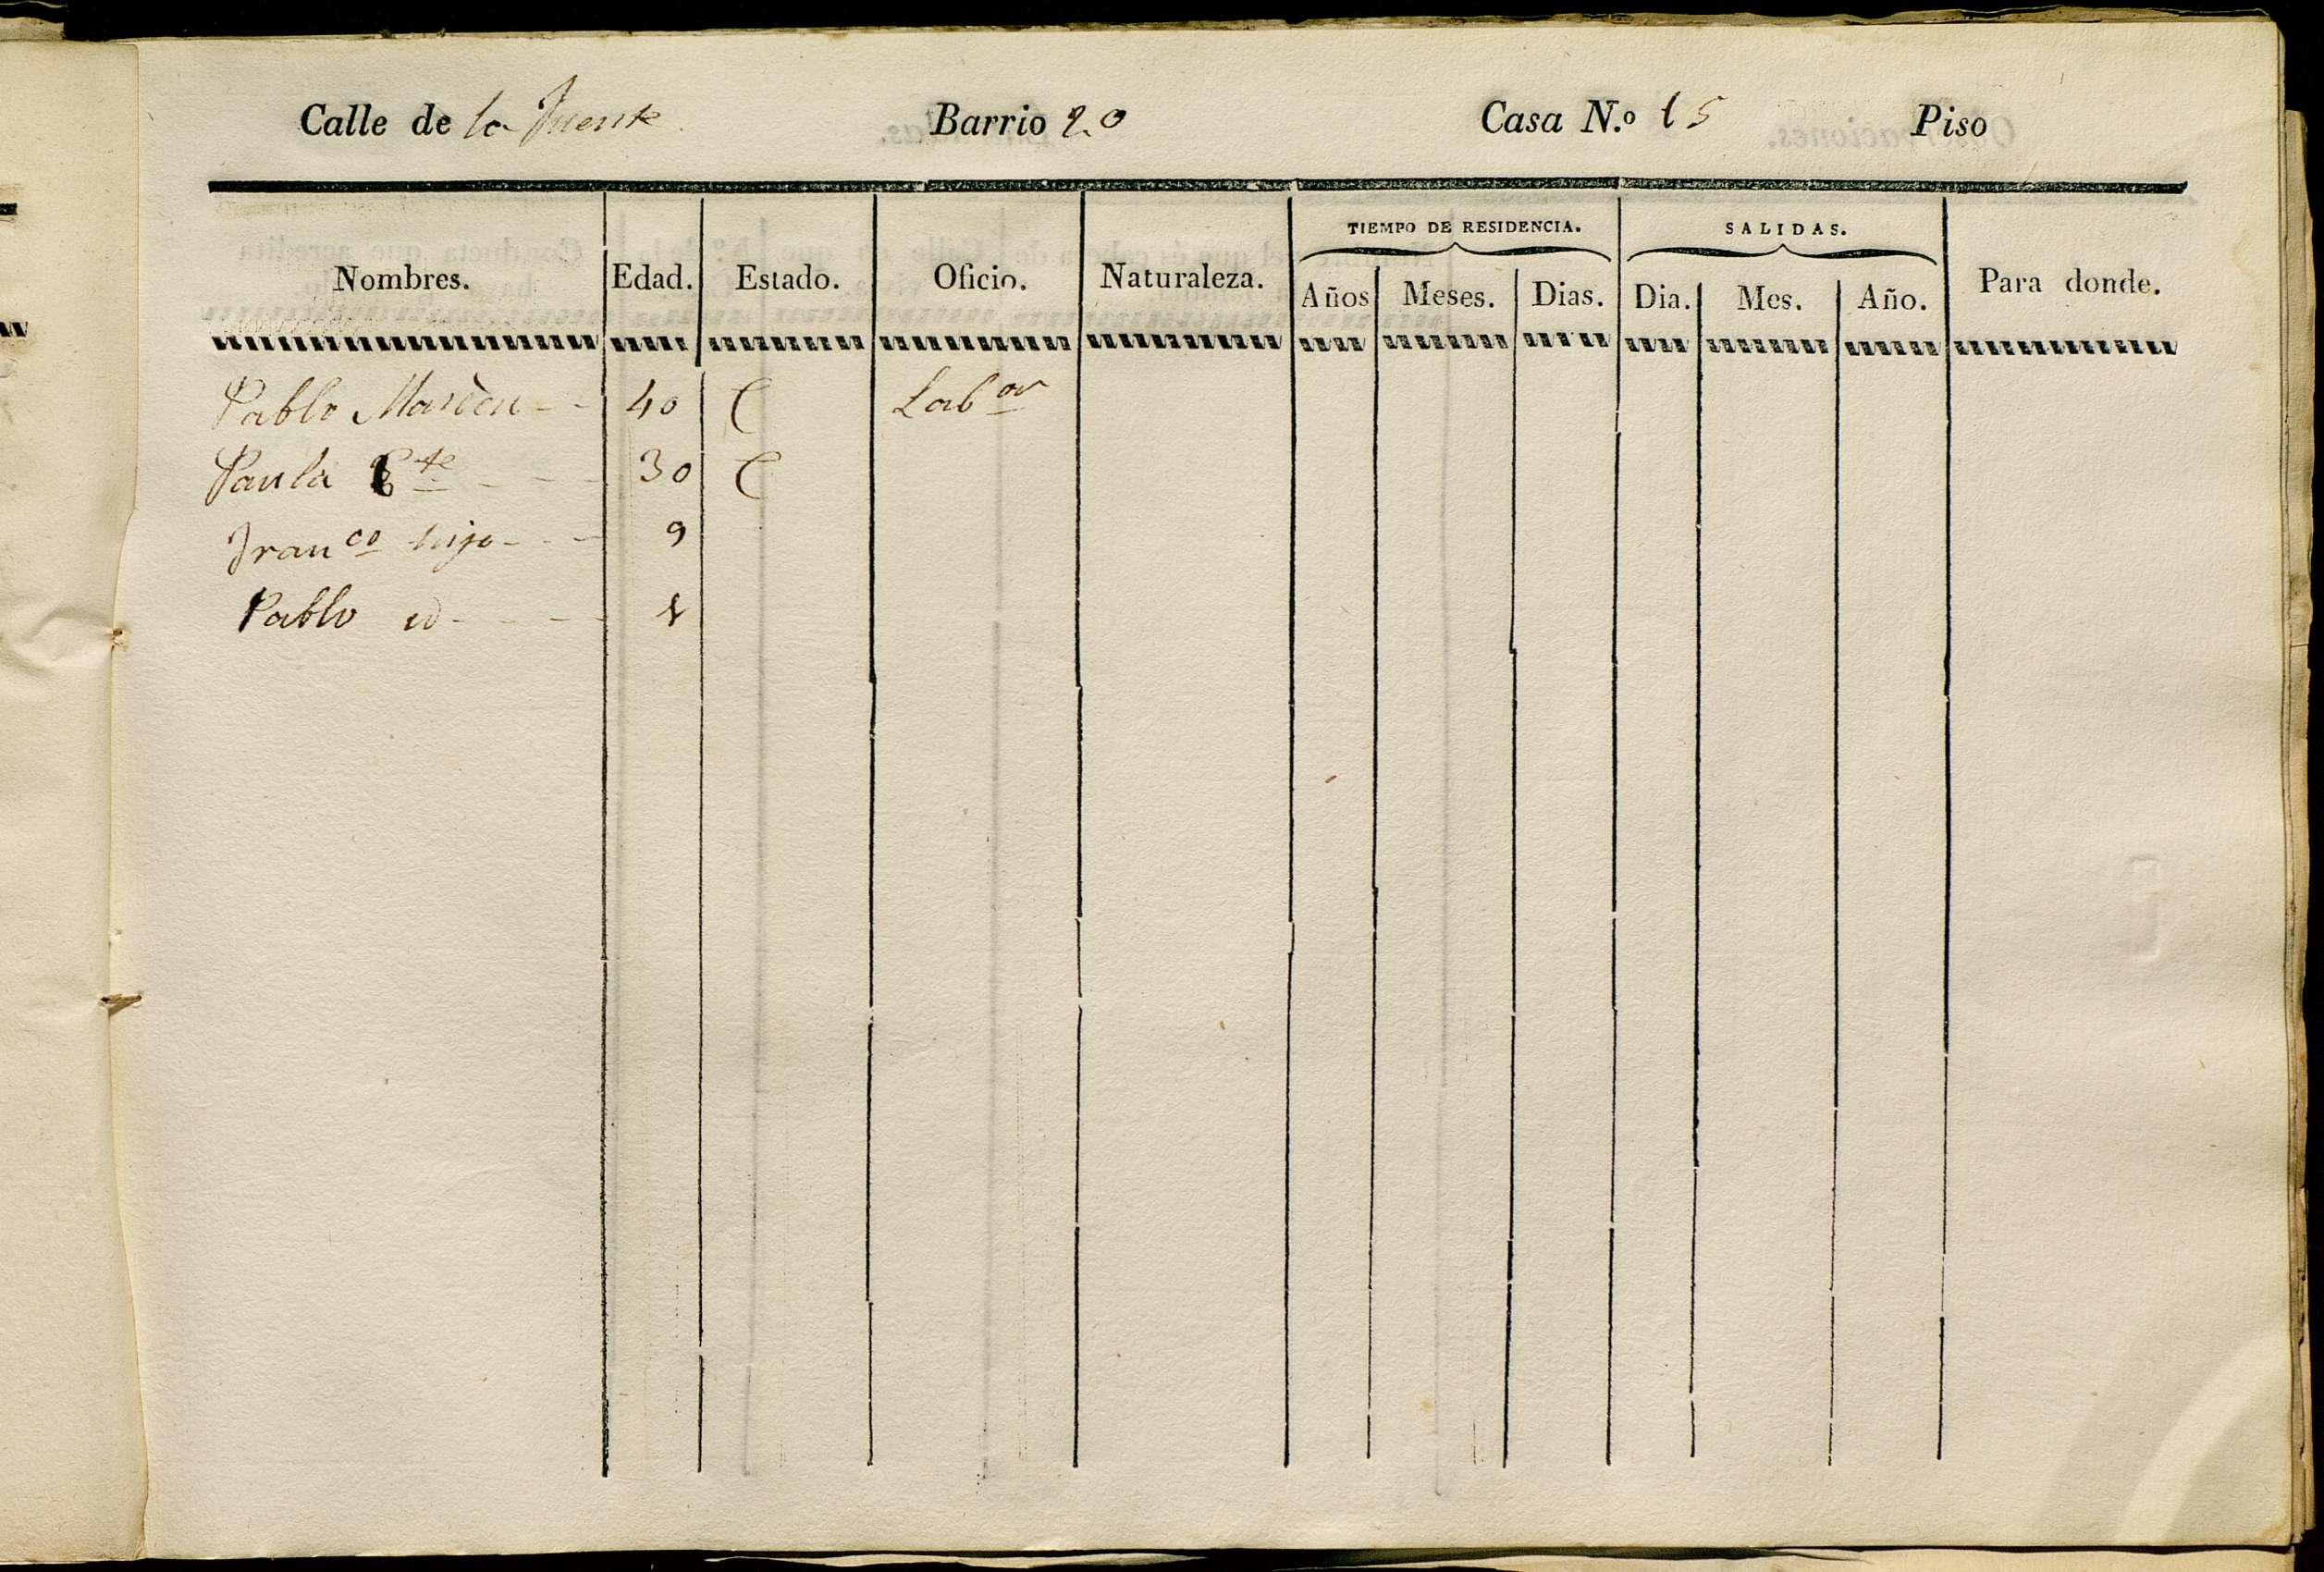 Calle de la Fuente Barrio 20 Casa N.º 15 Piso
TIEMPO DE RESIDENCIA. SALIDAS.
Nombres. Edad. Estado. Oficio. Naturaleza. Años Meses. Dias. Dia. Mes. Año. Para donde.
Pablo 40 C Lab or
Paula 30 C
Fran co hijo 9
Pablo id